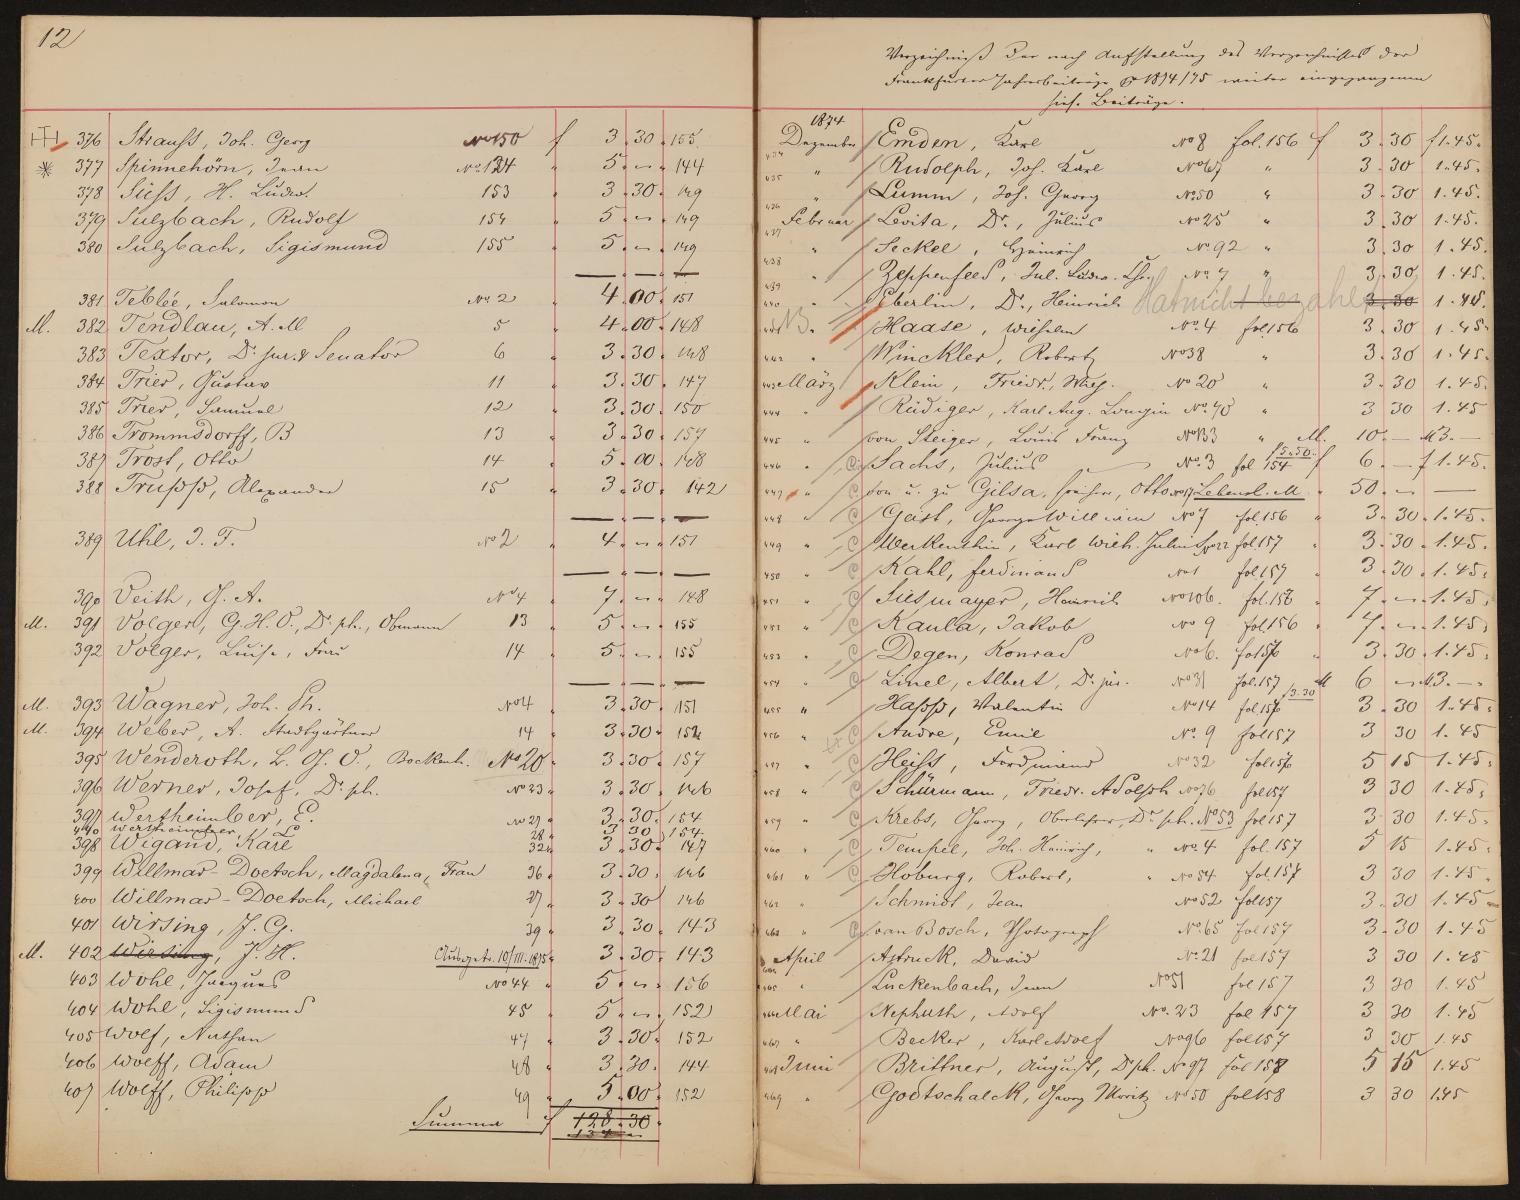 12
376 Strauss, Joh. Georg No 150 f 3 . 30 . 155
* 377 Spinnehörn, Jean No. 134 " 5 . — . 144
378 Süss, H. Ludw. 153 " 3 . 30 . 149
379 Sulzbach, Rudolf 154 " 5 . — . 149
380 Sulzbach, Sigismund 155 " 5 . — . 149
381 Teblée, Salomon No. 2 " 4 . 00 . 151
M. 382 Tendlau, A. M 5 " 4 . 00 . 148
383 Textor, Dr. jur. & Senator 6 " 3 . 30 . 148
384 Trier, Gustav 11 " 3 . 30 . 147
385 Trier, Samuel 12 " 3 . 30 . 150
386 Trommsdorff, B 13 " 3 . 30 . 157
387 Trost, Otto 14 " 5 . 00 . 148
388 Trupp, Alexander 15 " 3 . 30 . 142
389 Uhl, J. F. No 2 " 4 . — . 151
390 Veith, G. A. No 4 " 7 . — . 148
M. 391 Volger, G. H. O., Dr. ph., Obmann 13 " 5 . — . 155
392 Volger, Luise, Frau 14 " 5 . — . 155
M. 393 Wagner, Joh. Ph. No 4 " 3 . 30 . 151
M. 394 Weber, A. Stadtgärtner 14 " 3 . 30 . 152
395 Wenderoth, L. G. O., Bockenh. No 20 " 3 . 30 . 157
396 Werner, Josef, Dr. ph. No 23 " 3 . 30 . 146
397 Wertheimber, E. No 27 " 3 . 30 . 154
Wertheimber, L 28 " 3 30 154
398 Wigand, Karl 32 " 3 . 30 . 147
399 Willmar-Doetsch, Magdalena, Frau 36 " 3 . 30 . 146
400 Willmar-Doetsch, Michael 37 " 3 . 30 146
401 Wirsing, J. G. 39 " 3 . 30 . 143
M. 402 Wirsing, J. H. Ausgetr. 10/III. 1875 " 3 . 30 . 143
403 Wohl, Jacques No 44 " 5 . — . 156
404 Wohl, Sigismund 45 " 5 . — . 152
405 Wolf, Nathan 47 " 3 . 30 . 152
406 Wolff, Adam 48 " 3 . 30 . 144
407 Wolff, Philipp 49 " 5 . 00 . 152
Summa f 128 . 30
134 —
Verzeichniß der nach Aufstellung des Verzeichnisses der
Frankfurter Jahresbeiträge 1874/75 weiter eingegangenen
Beiträge.
1874
Dezember Emden, Karl No 8 fol. 156 f 3 . 30 f 1.45.
435 " Rudolph, Joh. Karl No 67 " 3 . 30 1.45.
436 " Lumm, Joh. Georg No 50 " 3 . 30 1.45.
437 Februar Levita, Dr., Julius No 25 " 3 . 30 1.45.
438 " Seckel, Heinrich No. 92 " 3 . 30 1.45.
439 " Zeppenfeld, Jul. Ludw. Chr. No. 7 " 3 . 30 1.45.
440 " Eberlin, Dr., Heinrich Hat nicht bezahlt 3 . 30 1.45.
441 " Haase, Wilhelm No. 4 fol. 156 3 . 30 1.45.
442 " Winckler, Robert No 38 " 3 . 30 1.45.
443 März Klein, Friedr. Wilh. No 20 " 3 . 30 1.45.
444 " Rüdiger, Karl Aug. No. 70 " 3 30 1.45
445 " von Steiger, Louis Franz No 133 " M. 10 . — M 3 . —
446 " Sachs, Julius No. 3 fol 154 f 5.50. f 6 . — f 1.45.
447 " von u. zu Gilsa, Freiherr, Otto No 17 Lebensl. M " 50 . — —
448 " Geist, Georg William No 7 fol. 156 " 3 . 30 . 1.45.
449 " Werkenthin, Karl Wilh. Julius No 22 fol. 157 " 3 . 30 . 1.45.
450 " Kahl, Ferdinand No 1 fol 157 " 3 . 30 . 1.45.
451 " Siesmayer, Heinrich No 106. fol. 156 " 7 . — . 1.45.
452 " Kaula, Jakob No 9 fol. 156 " 7 . — . 1.45.
453 " Degen, Konrad No 6. fol 156 " 3 . 30 . 1.45.
454 " Linel, Albert, Dr. jur. No 31 fol. 157 M 6 — M 3 . —
455 " Happ, Valentin No 14 fol. 156 f 3.30 3 . 30 1.45.
456 " Andre, Emil No. 9 fol 157 3 30 1.45
457 " Heiss, Ferdinand No 32 fol 156 5 15 1.45.
458 " Schürmann, Friedr. Adolph No 76 fol 157 3 30 1.45.
459 " Krebs, Georg, Oberlehrer, Dr. ph. No 53 fol 157 3 30 1.45.
460 " Tempel, Joh. Heinrich, " No. 4 fol. 157 5 15 1.45.
461 " Hoburg, Robert, " No 54 fol. 157 3 30 1.45.
462 " Schmidt, Jean No 52 fol 157 3 . 30 1.45
463 " van Bosch, Photograph No. 65 fol 157 3 . 30 1.45
April Astruck, David No. 21 fol 157 3 30 1.45
465 " Luckenbach, Jean No 51 fol 157 3 30 1.45
466 Mai Nephuth, Adolf No. 23 fol 157 3 30 1.45
467 " Becker, Karl Adolf No 96 fol 157 3 30 1.45
468 Juni Brittner, August, Dr. ph. No 97 fol 158 5 15 1.45
469 " Godtschalck, Georg Moritz No 50 fol 158 3 30 1.45